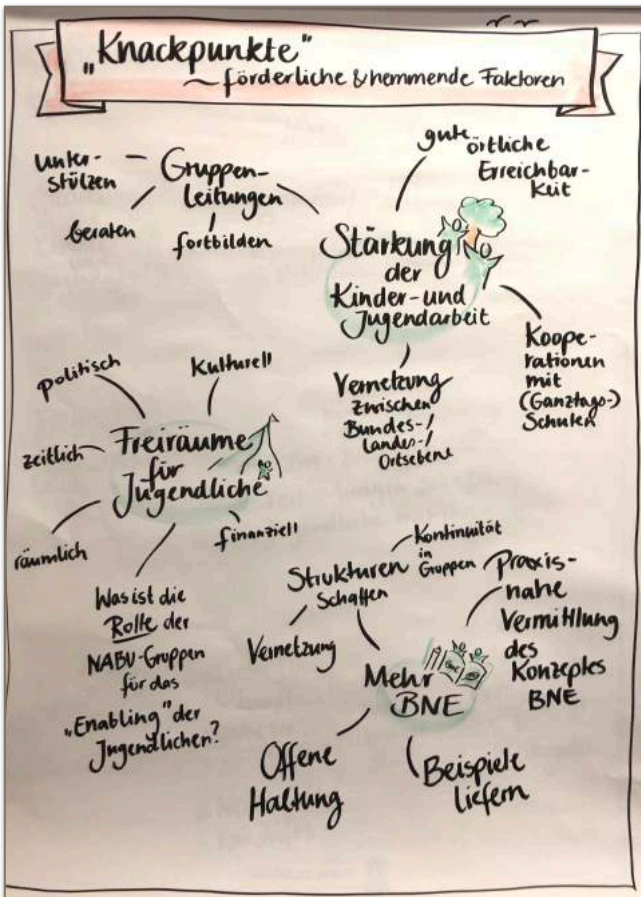 „Knackpunkte"
~ förderliche & hemmende Faktoren
gute örtliche
Erreichbar-
keit
Unter-
stützen
Gruppen-
leitungen
beraten
fortbilden
Stärkung
der
Kinder- und
Jugendarbeit
Koope-
rationen
mit
(Ganztags-)
Schulen
Vernetzung
zwischen
Bundes-/
Landes-/
Ortsebene
politisch
Kulturell
zeitlich
Freiräume
für
Jugendliche
räumlich
finanziell
Was ist die
Rolle der
NABU-Gruppen
für das
„Enabling" der
Jugendlichen?
Kontinuität
in
Gruppen
Strukturen
Schaffen
Vernetzung
Praxis-
nahe
Vermittlung
des
Konzeptes
BNE
Mehr
BNE
Offene
Haltung
Beispiele
liefern